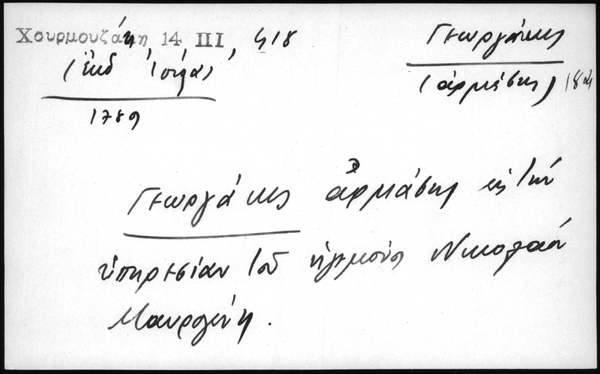 Χουρμουζάκη 14 III, 418
(ἐκδ Ἰόργα)
1789
Γεωργάκης
(ἀρμάσης) 18
Γεωργάκης ἀρμάσης εἰς τὴν
ὑπηρεσίαν τοῦ ἡγεμόνος Νικολάου
Μαυρογένη.